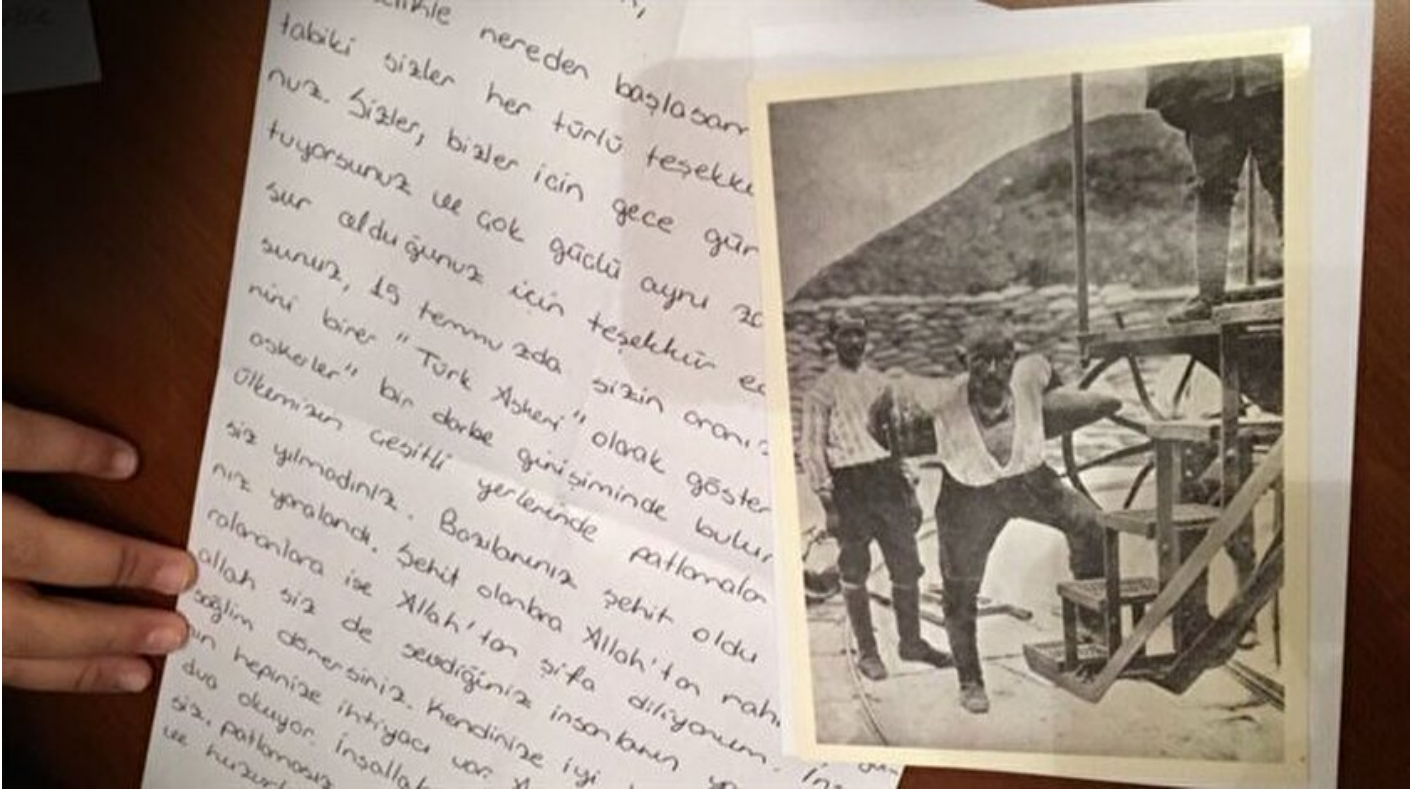 nereden başlasam
tabiki sizler her türlü teşekkü
nuz. Sizler, bizler için gece gün
tuyorsunuz ve çok güçlü aynı za
sur olduğunuz için teşekkür ed
sunuz, 15 temmuzda sizin aranız
nini birer "Türk Askeri" olarak göster
askerler" bir darbe girişiminde bulun
Ülkemizin çeşitli yerlerinde patlamalar
siz yılmadınız. Bazılarınız şehit oldu
nız yaralandı. Şehit olanlara Allah'tan rah
ralananlara ise Allah'tan şifa diliyorum. İnş
allah siz de sevdiğiniz insanların ya
sağlim dönersiniz. Kendinize iyi
hepinize ihtiyacı var.
dua okuyor. İnşallah
siz, patlamasız
ve huzurl